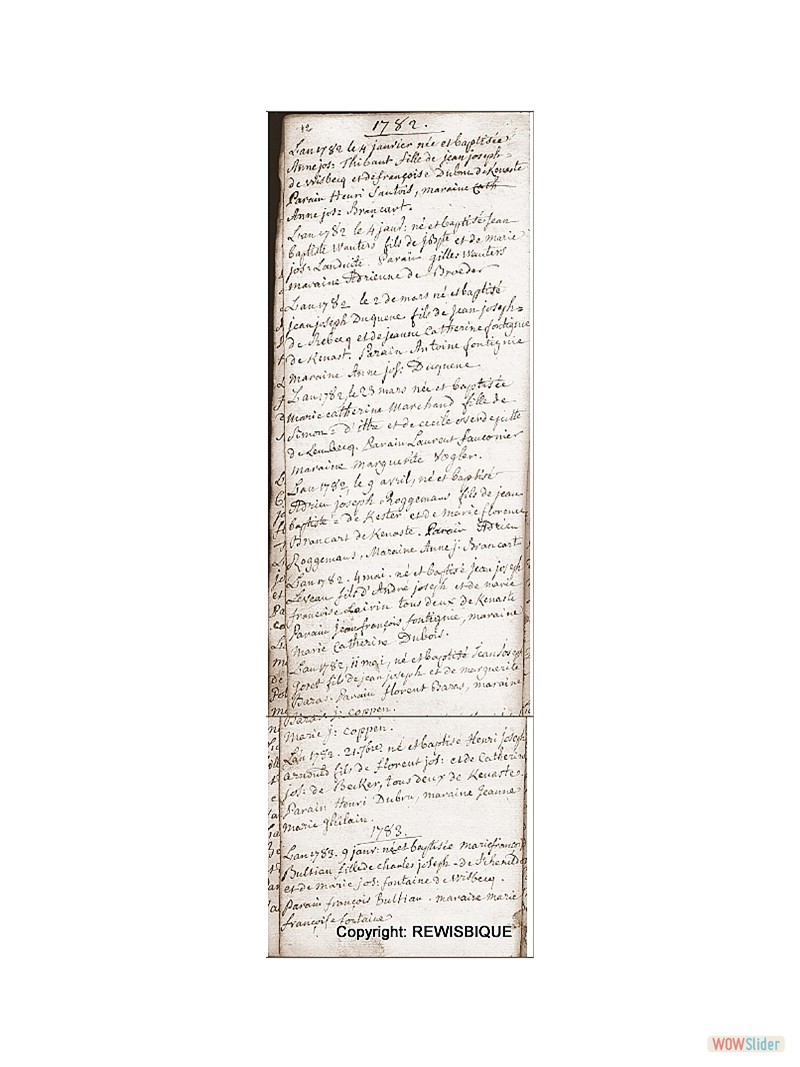 42
1782.
Lan 1782 le 4 janvier née et baptisée
Anne jos: Thibaut fille de jean joseph -
de Wisbecq et de françoise Dubru de Kenaste
Parain Henri Sautois, maraine Cath
Anne jos: Brancart.
Lan 1782 le 4 janv: né et baptisé jean
baptiste Wauters fils de et de marie
jos: Landuite. Parain gilles Wauters
maraine Adrienne de Broeder
Lan 1782 le 2 de mars né et baptisé
jean joseph Duquene fils de jean joseph =
de Rebecq et de jeanne Catherine fontignie
de Kenast. Parain Antoine fontignie
Maraine Anne jos: Duquene.
Lan 1782, le 23 mars née et baptisée
Marie catherine Marchand fille de
Simon = d'ittre et de cecile
de Lembecq. Parain Laurent fauconier
maraine marguerite Vogler.
Lan 1782, le 9 avril, né et baptisé
Adrien joseph Roggemans fils de jean
baptiste = de Kester et de marie florence
Brancart de Kenaste. Parain Adrien
Roggemans, Maraine Anne j: Brancart
Lan 1782. 4 mai. né et baptisé jean joseph
Leveau fils d'André joseph et de marie
francoise tous deux de Kenaste
Parain jean françois fontignie, maraine
Marie Catherine Dubois.
Lan 1782, 11 mai, né et baptisé jean joseph
goret fils de jean joseph et de marguerite
Bazas. Parain florent Bazas, maraine
Marie j: coppen.
Lan 1782. 21. 7bre. né et baptisé Henri joseph
arnould fils de florent jos: et de Catherine
jos: de Becker, tous deux de Kenaste.
Parain Henri Dubru, maraine jeanne
Marie ghilain.
1783.
Lan 1783. 9 janv: née et baptisée marie françoise
Bultiau fille de charles joseph - de
et de marie jos: fontaine de Wisbecq.
Parain françois Bultiau. maraine marie
françoise fontaine
Copyright: REWISBIQUE
WOWSlider